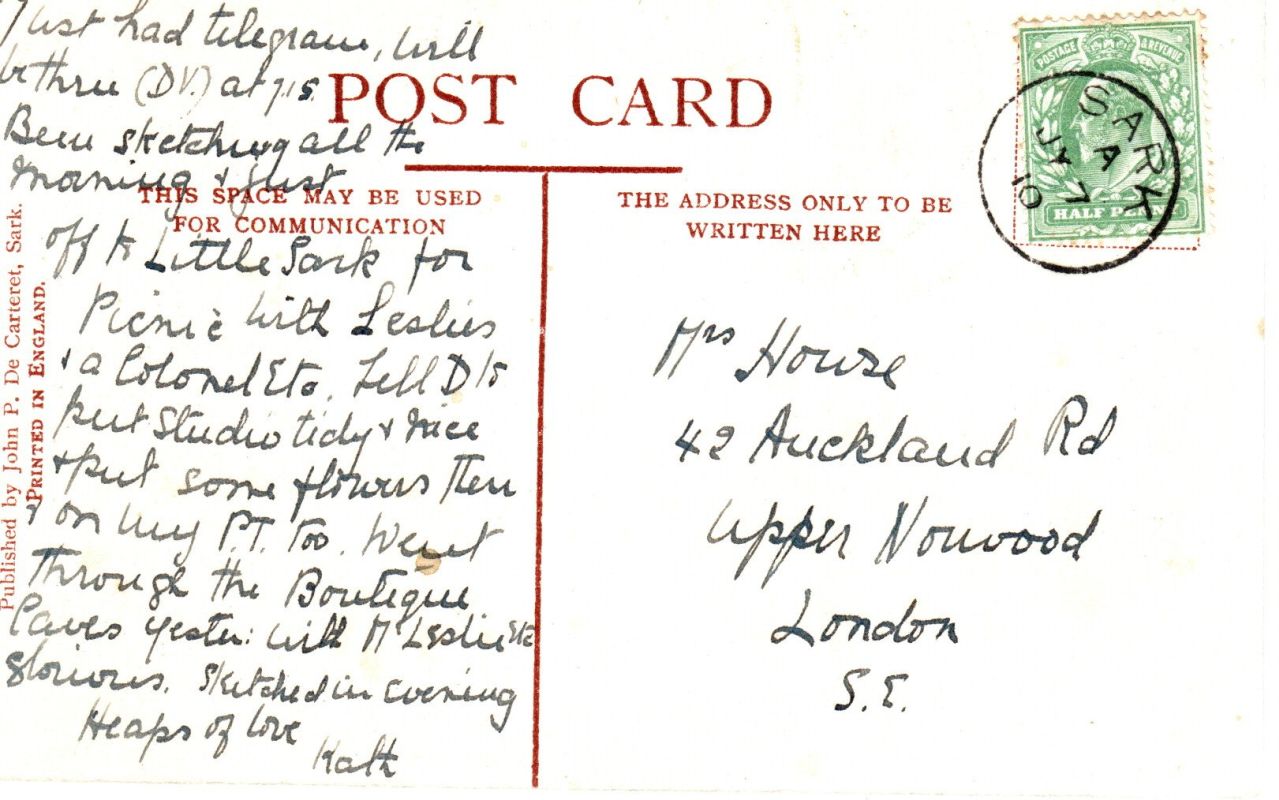 Just had telegram, will
be thru (D.V.) at 7.15.
Been sketching all the
morning & just
off to Little Sark for
Picnic with Leslies
& a Colonel Etc. Tell D to
put Studio tidy & nice
& put some flowers then
& on my P.T. too. Went
through the Boutique
Caves yester: with Mr Leslie Etc
glorious. Sketched in evening
Heaps of love
Kath
POST CARD
THIS SPACE MAY BE USED
FOR COMMUNICATION
THE ADDRESS ONLY TO BE
WRITTEN HERE
Published by John P. De Carteret, Sark.
PRINTED IN ENGLAND.
POSTAGE & REVENUE
HALF PENNY
SARK
A
JY 7
10
Mrs House
42 Auckland Rd
Upper Norwood
London
S.E.